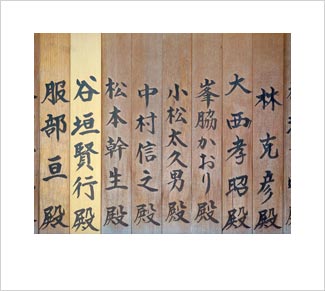 林克彦殿
大西孝昭殿
峯脇かおり殿
小松太久男殿
中村信之殿
松本幹生殿
谷垣賢行殿
服部亘殿